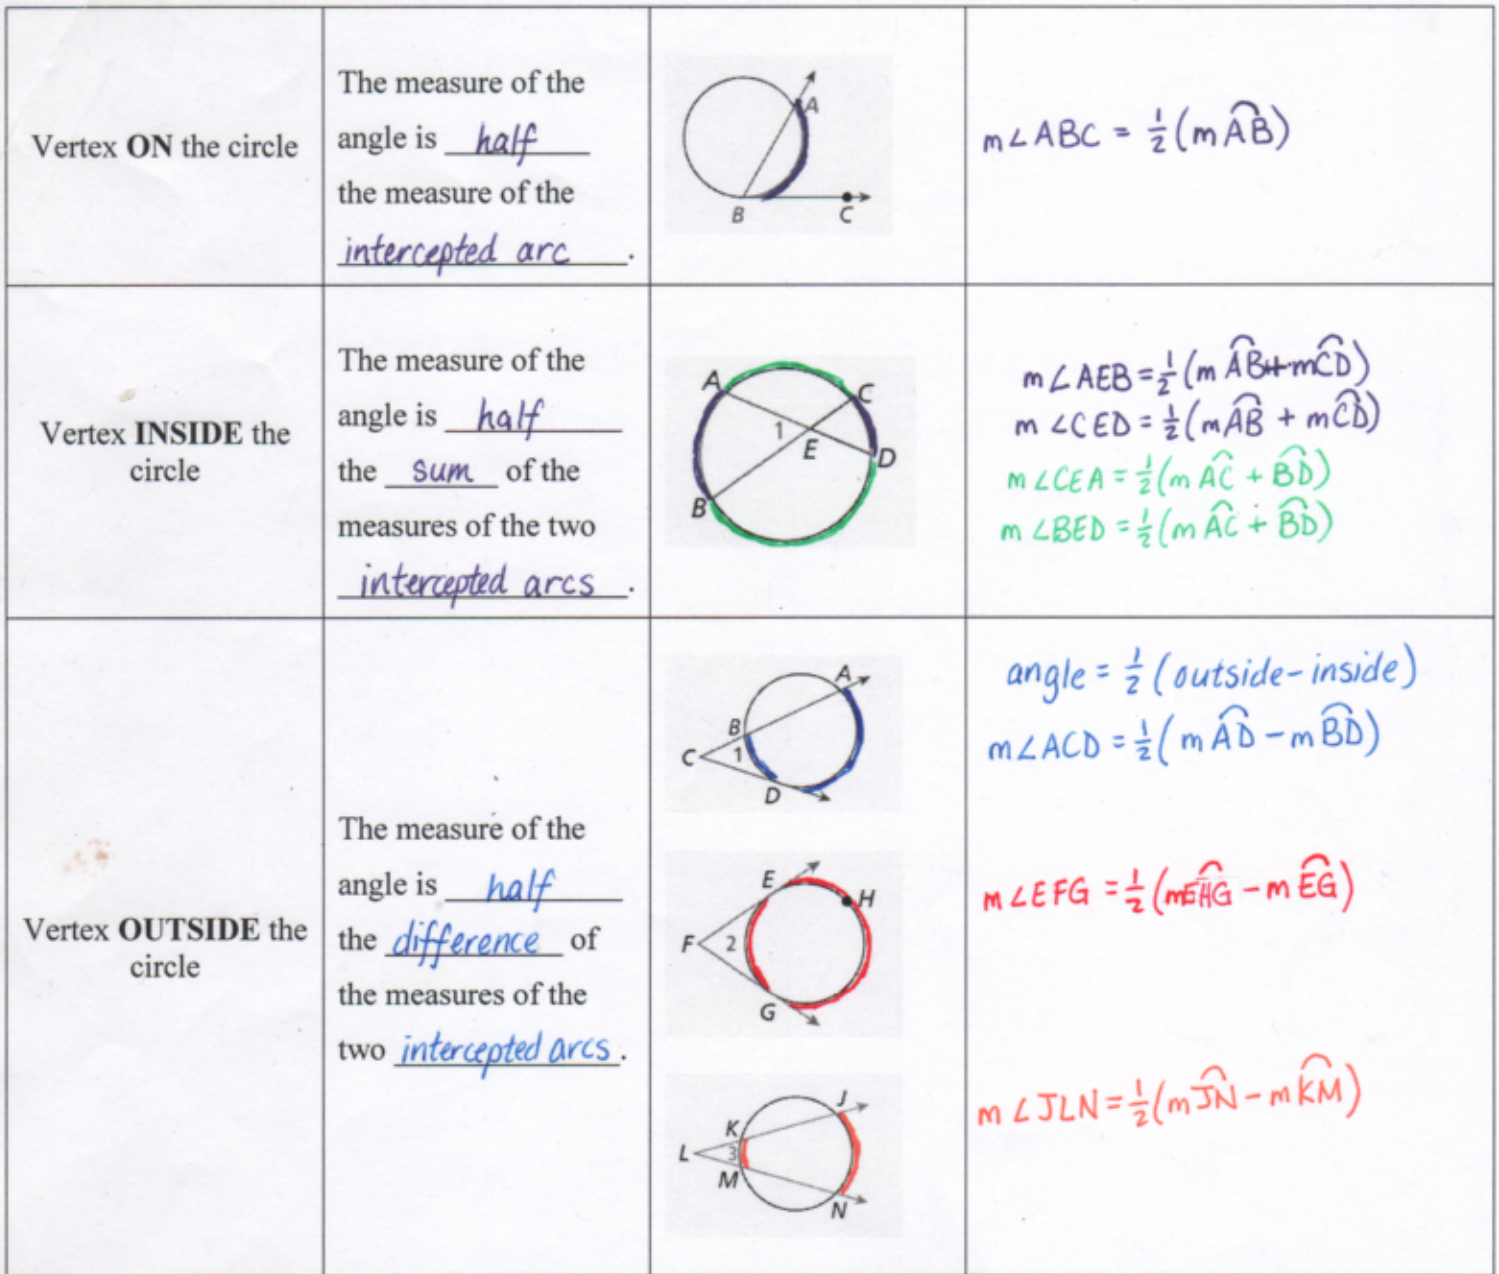 Vertex ON the circle
The measure of the
angle is half
the measure of the
intercepted arc.
A
B
C
m∠ABC = ½(mAB)
Vertex INSIDE the
circle
The measure of the
angle is half
the sum of the
measures of the two
intercepted arcs.
A
C
1
E
D
B
m∠AEB = ½(mAB + mCD)
m∠CED = ½(mAB + mCD)
m∠CEA = ½(mAC + BD)
m∠BED = ½(mAC + BD)
Vertex OUTSIDE the
circle
The measure of the
angle is half
the difference of
the measures of the
two intercepted arcs.
A
B
C 1
D
angle = ½(outside-inside)
m∠ACD = ½(mAD - mBD)
E
H
F 2
G
m∠EFG = ½(mEHG - mEG)
J
K
L 3
M
N
m∠JLN = ½(mJN - mKM)